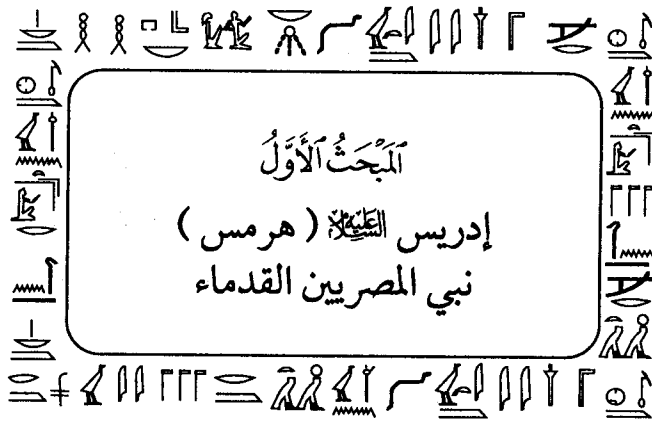 ٱلْمَبْحَثُ ٱلْأَوَّلُ
إدريس عليه السلام ( هرمس )
نبي المصريين القدماء